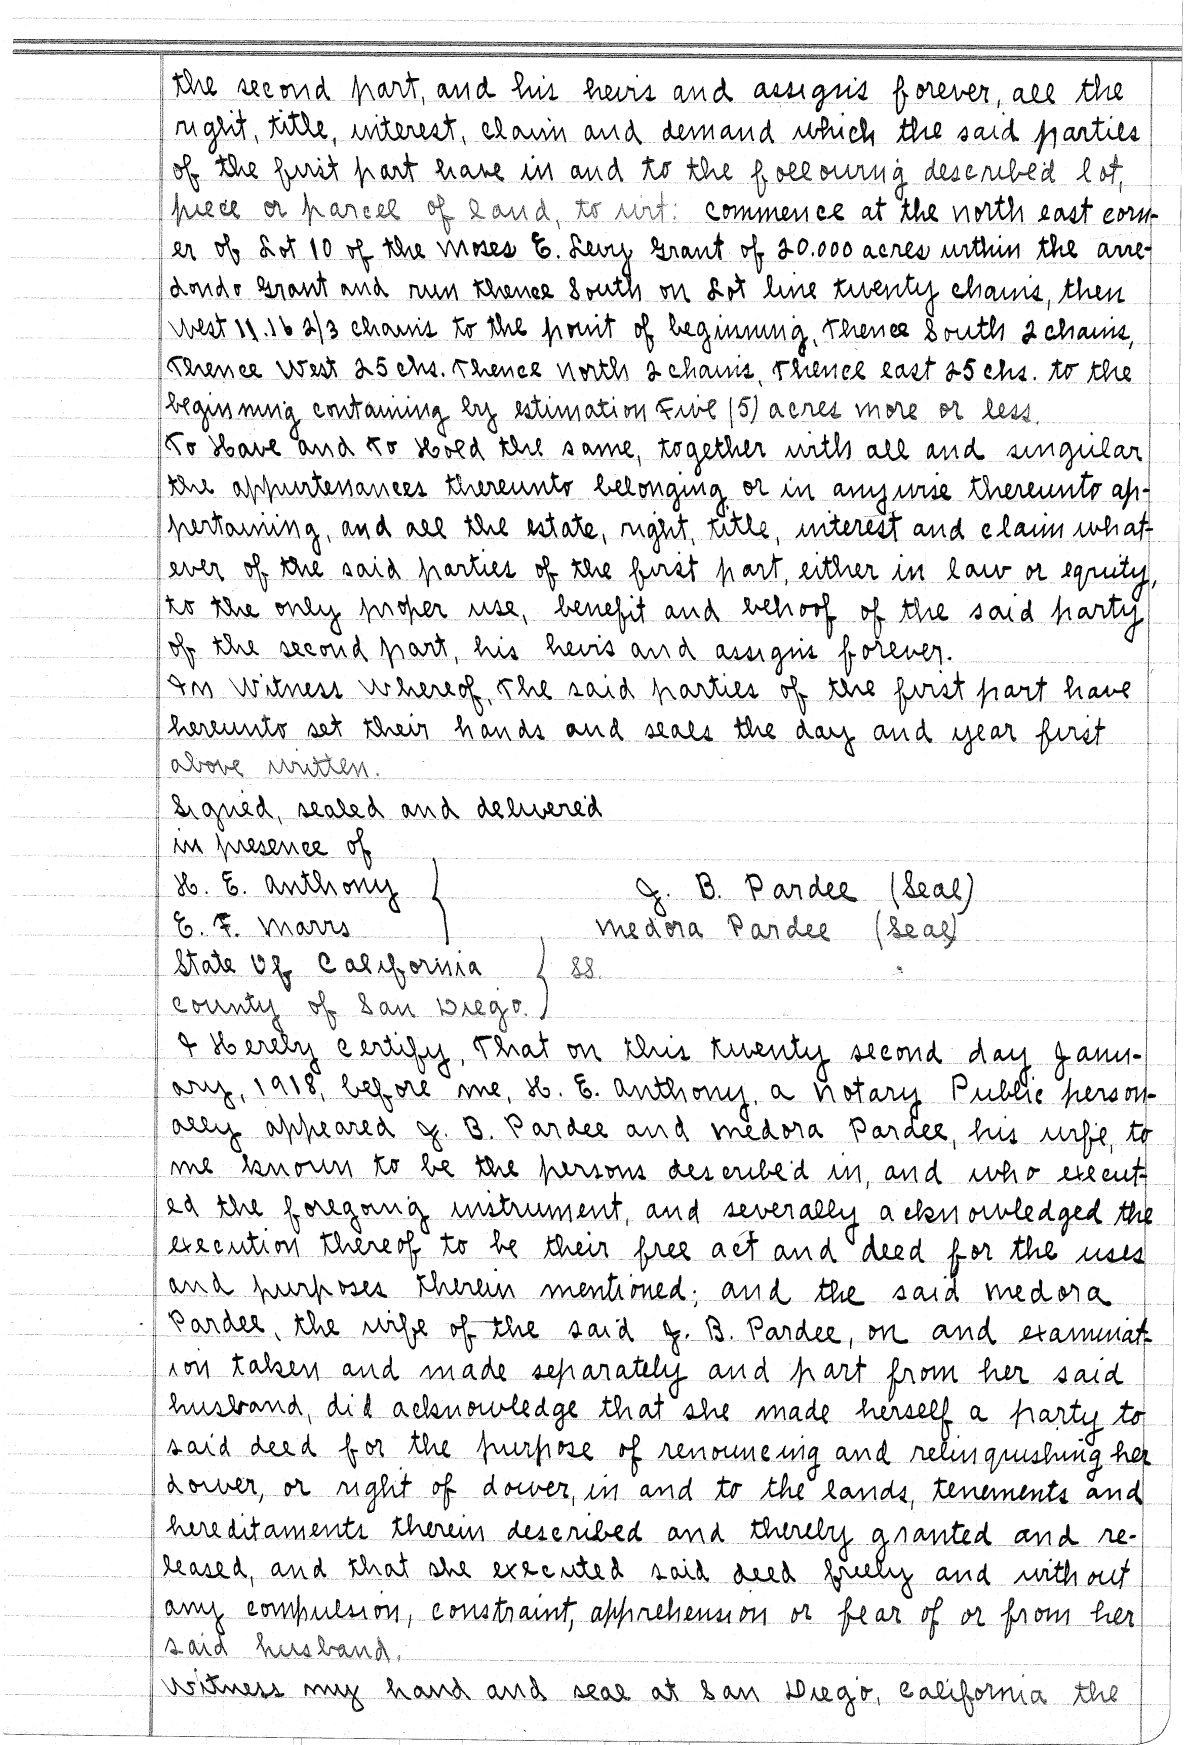 the second part, and his heirs and assigns forever, all the
right, title, interest, claim and demand which the said parties
of the first part have in and to the following described lot,
piece or parcel of land, to wit: Commence at the north east corn-
er of Lot 10 of the Moses E. Levy Grant of 20.000 acres within the arre-
dondo Grant and run thence South on Lot line twenty chains, then
West 11.16 2/3 chains to the point of beginning, Thence South 2 chains,
Thence West 25 chs. Thence north 2 chains, Thence east 25 chs. to the
beginning containing by estimation Five (5) acres more or less.
To Have and To Hold the same, together with all and singular
the appurtenances thereunto belonging or in anywise thereunto ap-
pertaining, and all the estate, right, title, interest and claim what-
ever of the said parties of the first part, either in law or equity,
to the only proper use, benefit and behoof of the said party
of the second part, his heirs and assigns forever.
In Witness Whereof, The said parties of the first part have
hereunto set their hands and seals the day and year first
above written.
Signed, sealed and delivered
in presence of
H. E. Anthony } J. B. Pardee (Seal)
E. F. Marrs Medora Pardee (Seal)
State Of California } SS.
County of San Diego.
I Hereby Certify, That on this twenty second day Janu-
ary, 1918, before me, H. E. Anthony, a Notary Public person-
ally appeared J. B. Pardee and Medora Pardee, his wife, to
me known to be the persons described in, and who execut-
ed the foregoing instrument, and severally acknowledged the
execution thereof to be their free act and deed for the uses
and purposes therein mentioned; and the said Medora
Pardee, the wife of the said J. B. Pardee, on and examinat-
ion taken and made separately and part from her said
husband, did acknowledge that she made herself a party to
said deed for the purpose of renouncing and relinquishing her
dower, or right of dower, in and to the lands, tenements and
hereditaments therein described and thereby granted and re-
leased, and that she executed said deed freely and without
any compulsion, constraint, apprehension or fear of or from her
said husband.
Witness my hand and seal at San Diego, California the